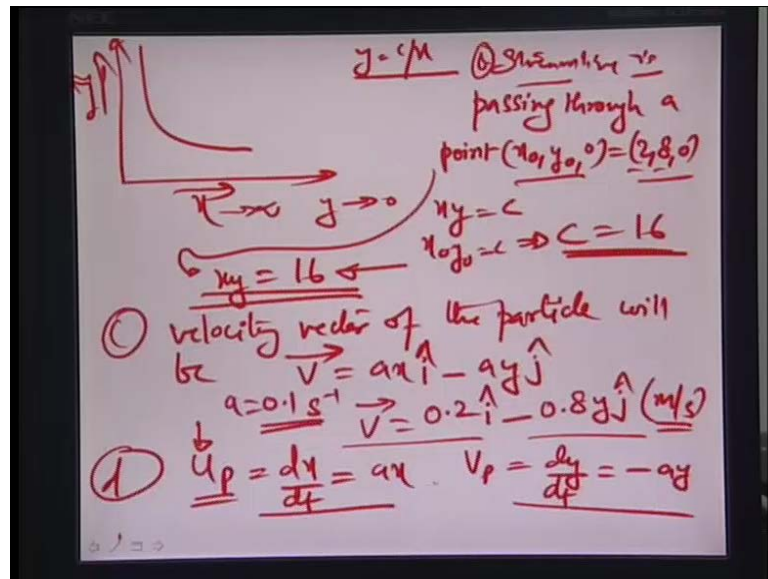 y = c/x
(b) Streamline is
passing through a
point (x₀, y₀, 0) = (2, 8, 0)
y
x → ∞ y → 0
xy = c
x₀y₀ = c ⇒ C = 16
xy = 16 ←
(c) velocity vector of the particle will
be V = ax î - ay ĵ
a = 0.1 s⁻¹ V = 0.2 î - 0.8y ĵ (m/s)
(d) u_p = dx/dt = ax. V_p = dy/dt = -ay